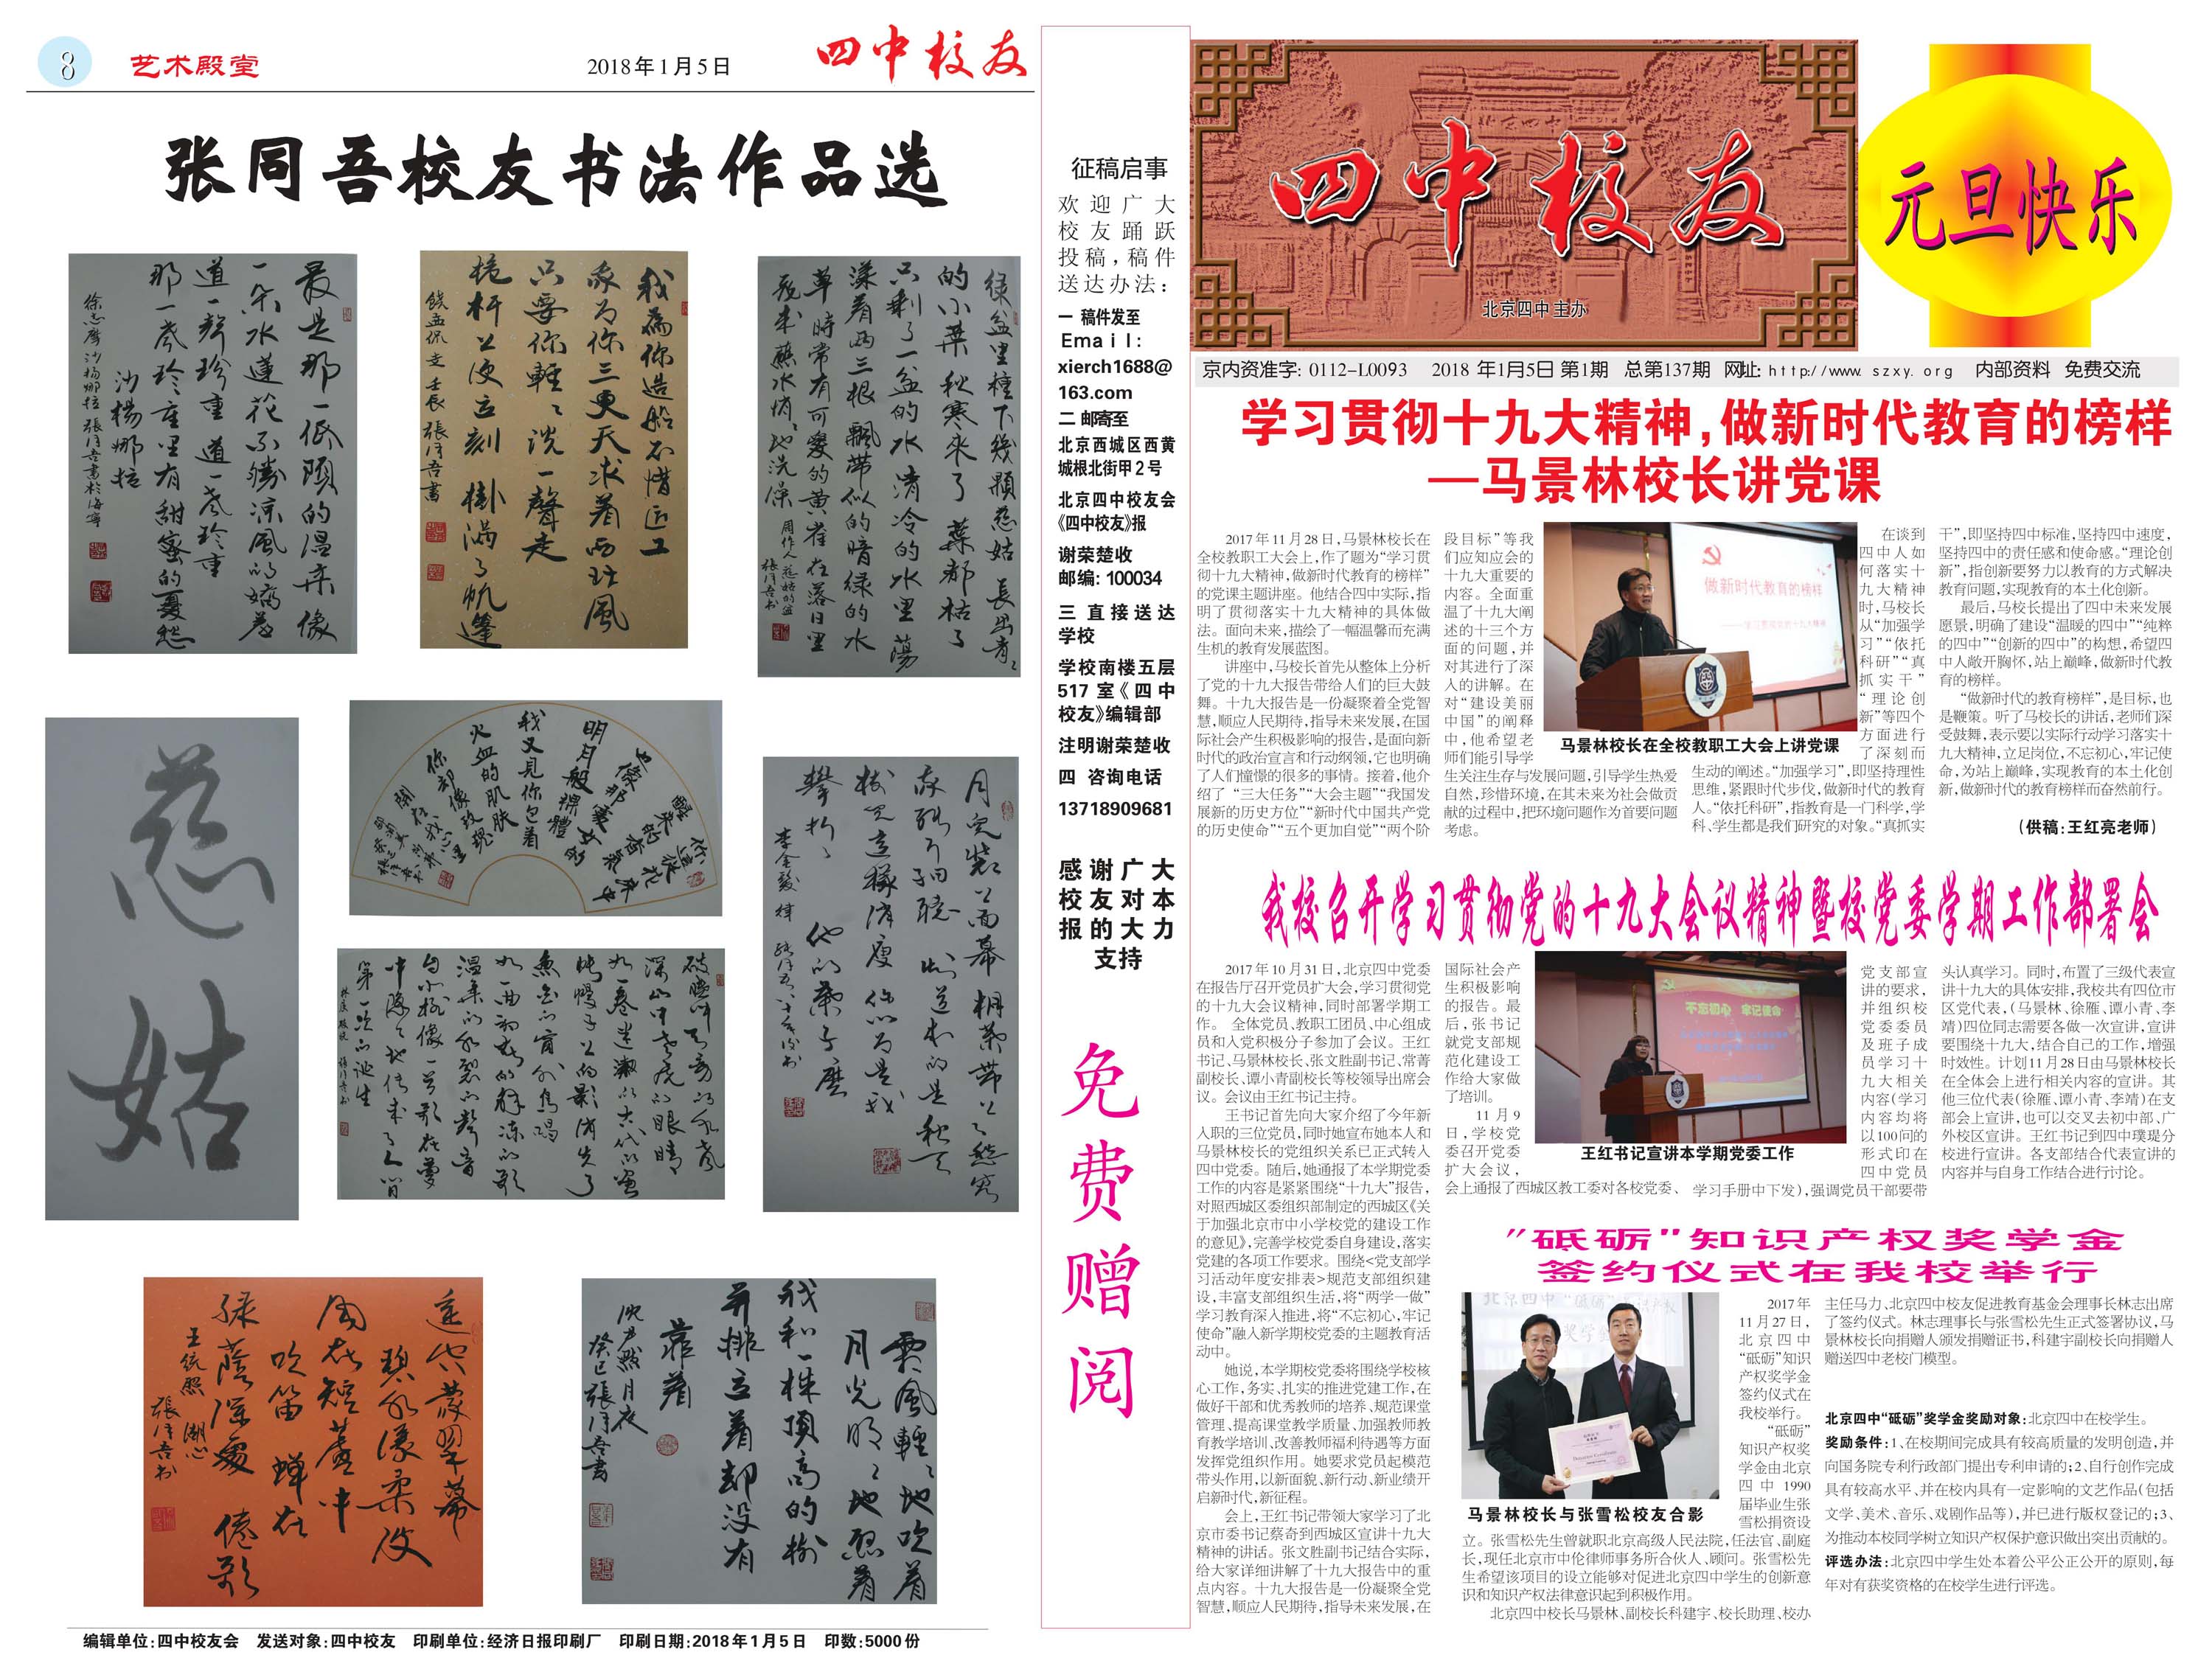 8
艺术殿堂
2018年1月5日
四中校友
张同吾校友书法作品选
最是那一低头的温柔像
一朵水莲花不胜凉风的娇羞
道一声珍重道一声珍重
那一声珍重里有甜蜜的忧愁
沙楊娜拉
徐志摩 沙杨娜拉 張同吾書於海寧
我為你造船不惜匠工
我为你三更天求着西北風
只要你輕輕说一聲走
桅杆上便立刻掛滿了帆篷
饒孟侃 走 壬辰 張同吾書
绿盆里種下幾顆慈姑 長出青青
的小葉 秋寒来了 葉都枯了
只剩了一盆的水 清冷的水里蕩
漾着两三根飄带似的暗绿的水
草 時常有可愛的黄雀 在落日里
飛来 蘸水悄悄地洗澡
周作人 慈姑的盆
張同吾书
慈姑
编辑单位:四中校友会 发送对象:四中校友 印刷单位:经济日报印刷厂 印刷日期:2018年1月5日 印数:5000份
霜風輕輕地吹着
月光明明地照着
我和一株頂高的樹
并排立着却没有
靠着
沈尹默月夜
癸巳張同吾書
征稿启事
欢迎广大
校友踊跃
投稿,稿件
送达办法:
一 稿件发至
Email:
xierch1688@
163.com
二 邮寄至
北京西城区西黄
城根北街甲2号
北京四中校友会
《四中校友》报
谢荣楚收
邮编: 100034
三 直接送达
学校
学校南楼五层
517室《四中
校友》编辑部
注明谢荣楚收
四 咨询电话
13718909681
感谢广大
校友对本
报的大力
支持
免费赠阅
四中校友
北京四中 主办
元旦快乐
京内资准字: 0112-L0093 2018 年1月5日 第1期 总第137期 网址: http://www. szxy. org 内部资料 免费交流
学习贯彻十九大精神,做新时代教育的榜样
—马景林校长讲党课
2017年11月28日,马景林校长在
全校教职工大会上,作了题为“学习贯
彻十九大精神,做新时代教育的榜样”
的党课主题讲座。他结合四中实际,指
明了贯彻落实十九大精神的具体做
法。面向未来,描绘了一幅温馨而充满
生机的教育发展蓝图。
讲座中,马校长首先从整体上分析
了党的十九大报告带给人们的巨大鼓
舞。十九大报告是一份凝聚着全党智
慧,顺应人民期待,指导未来发展,在国
际社会产生积极影响的报告,是面向新
时代的政治宣言和行动纲领,它也明确
了人们憧憬的很多的事情。接着,他介
绍了 “三大任务”“大会主题”“我国发
展新的历史方位”“新时代中国共产党
的历史使命”“五个更加自觉”“两个阶
段目标”等我
们应知应会的
十九大重要的
内容。全面重
温了十九大阐
述的十三个方
面的问题,并
对其进行了深
入的讲解。在
对“建设美丽
中国”的阐释
中,他希望老
师们能引导学
生关注生存与发展问题,引导学生热爱
自然,珍惜环境,在其未来为社会做贡
献的过程中,把环境问题作为首要问题
考虑。
做新时代教育的榜样
马景林校长在全校教职工大会上讲党课
在谈到
四中人如
何落实十
九大精神
时,马校长
从“加强学
习”“依托
科研”“真
抓实干”
“理论创
新”等四个
方面进行
了深刻而
生动的阐述。“加强学习”,即坚持理性
思维,紧跟时代步伐,做新时代的教育
人。“依托科研”,指教育是一门科学,学
科、学生都是我们研究的对象。“真抓实
干”,即坚持四中标准,坚持四中速度,
坚持四中的责任感和使命感。“理论创
新”,指创新要努力以教育的方式解决
教育问题,实现教育的本土化创新。
最后,马校长提出了四中未来发展
愿景,明确了建设“温暖的四中”“纯粹
的四中”“创新的四中”的构想,希望四
中人敞开胸怀,站上巅峰,做新时代教
育的榜样。
“做新时代的教育榜样”,是目标,也
是鞭策。听了马校长的讲话,老师们深
受鼓舞,表示要以实际行动学习落实十
九大精神,立足岗位,不忘初心,牢记使
命,为站上巅峰,实现教育的本土化创
新,做新时代的教育榜样而奋然前行。
(供稿:王红亮老师)
我校召开学习贯彻党的十九大会议精神暨校党委学期工作部署会
2017年10月31日,北京四中党委
在报告厅召开党员扩大会,学习贯彻党
的十九大会议精神,同时部署学期工
作。 全体党员、教职工团员、中心组成
员和入党积极分子参加了会议。王红
书记、马景林校长、张文胜副书记、常菁
副校长、谭小青副校长等校领导出席会
议。会议由王红书记主持。
王书记首先向大家介绍了今年新
入职的三位党员,同时她宣布她本人和
马景林校长的党组织关系已正式转入
四中党委。随后,她通报了本学期党委
工作的内容是紧紧围绕“十九大”报告,
对照西城区委组织部制定的西城区《关
于加强北京市中小学校党的建设工作
的意见》,完善学校党委自身建设,落实
党建的各项工作要求。围绕<党支部学
习活动年度安排表>规范支部组织建
设,丰富支部组织生活,将“两学一做”
学习教育深入推进,将“不忘初心,牢记
使命”融入新学期校党委的主题教育活
动中。
她说,本学期校党委将围绕学校核
心工作,务实、扎实的推进党建工作,在
做好干部和优秀教师的培养、规范课堂
管理、提高课堂教学质量、加强教师教
育教学培训、改善教师福利待遇等方面
发挥党组织作用。她要求党员起模范
带头作用,以新面貌、新行动、新业绩开
启新时代,新征程。
会上,王红书记带领大家学习了北
京市委书记蔡奇到西城区宣讲十九大
精神的讲话。张文胜副书记结合实际,
给大家详细讲解了十九大报告中的重
点内容。十九大报告是一份凝聚全党
智慧,顺应人民期待,指导未来发展,在
国际社会产
生积极影响
的报告。最
后,张书记
就党支部规
范化建设工
作给大家做
了培训。
11月9
日,学校党
委召开党委
扩大会议,
会上通报了西城区教工委对各校党委、
不忘初心 牢记使命
王红书记宣讲本学期党委工作
党支部宣
讲的要求,
并组织校
党委委员
及班子成
员学习十
九大相关
内容(学习
内容均将
以100问的
形式印在
四中党员
学习手册中下发),强调党员干部要带
头认真学习。同时,布置了三级代表宣
讲十九大的具体安排,我校共有四位市
区党代表,(马景林、徐雁、谭小青、李
靖)四位同志需要各做一次宣讲,宣讲
要围绕十九大,结合自己的工作,增强
时效性。计划11月28日由马景林校长
在全体会上进行相关内容的宣讲。其
他三位代表(徐雁、谭小青、李靖)在支
部会上宣讲,也可以交叉去初中部、广
外校区宣讲。王红书记到四中璞瑅分
校进行宣讲。各支部结合代表宣讲的
内容并与自身工作结合进行讨论。
"砥砺"知识产权奖学金
签约仪式在我校举行
马景林校长与张雪松校友合影
2017年
11月27日,
北京四中
“砥砺”知识
产权奖学金
签约仪式在
我校举行。
“砥砺”
知识产权奖
学金由北京
四中1990
届毕业生张
雪松捐资设
立。张雪松先生曾就职北京高级人民法院,任法官、副庭
长,现任北京市中伦律师事务所合伙人、顾问。张雪松先
生希望该项目的设立能够对促进北京四中学生的创新意
识和知识产权法律意识起到积极作用。
北京四中校长马景林、副校长科建宇、校长助理、校办
主任马力、北京四中校友促进教育基金会理事长林志出席
了签约仪式。林志理事长与张雪松先生正式签署协议,马
景林校长向捐赠人颁发捐赠证书,科建宇副校长向捐赠人
赠送四中老校门模型。
北京四中“砥砺”奖学金奖励对象:北京四中在校学生。
奖励条件:1、在校期间完成具有较高质量的发明创造,并
向国务院专利行政部门提出专利申请的;2、自行创作完成
具有较高水平、并在校内具有一定影响的文艺作品(包括
文学、美术、音乐、戏剧作品等),并已进行版权登记的;3、
为推动本校同学树立知识产权保护意识做出突出贡献的。
评选办法:北京四中学生处本着公平公正公开的原则,每
年对有获奖资格的在校学生进行评选。